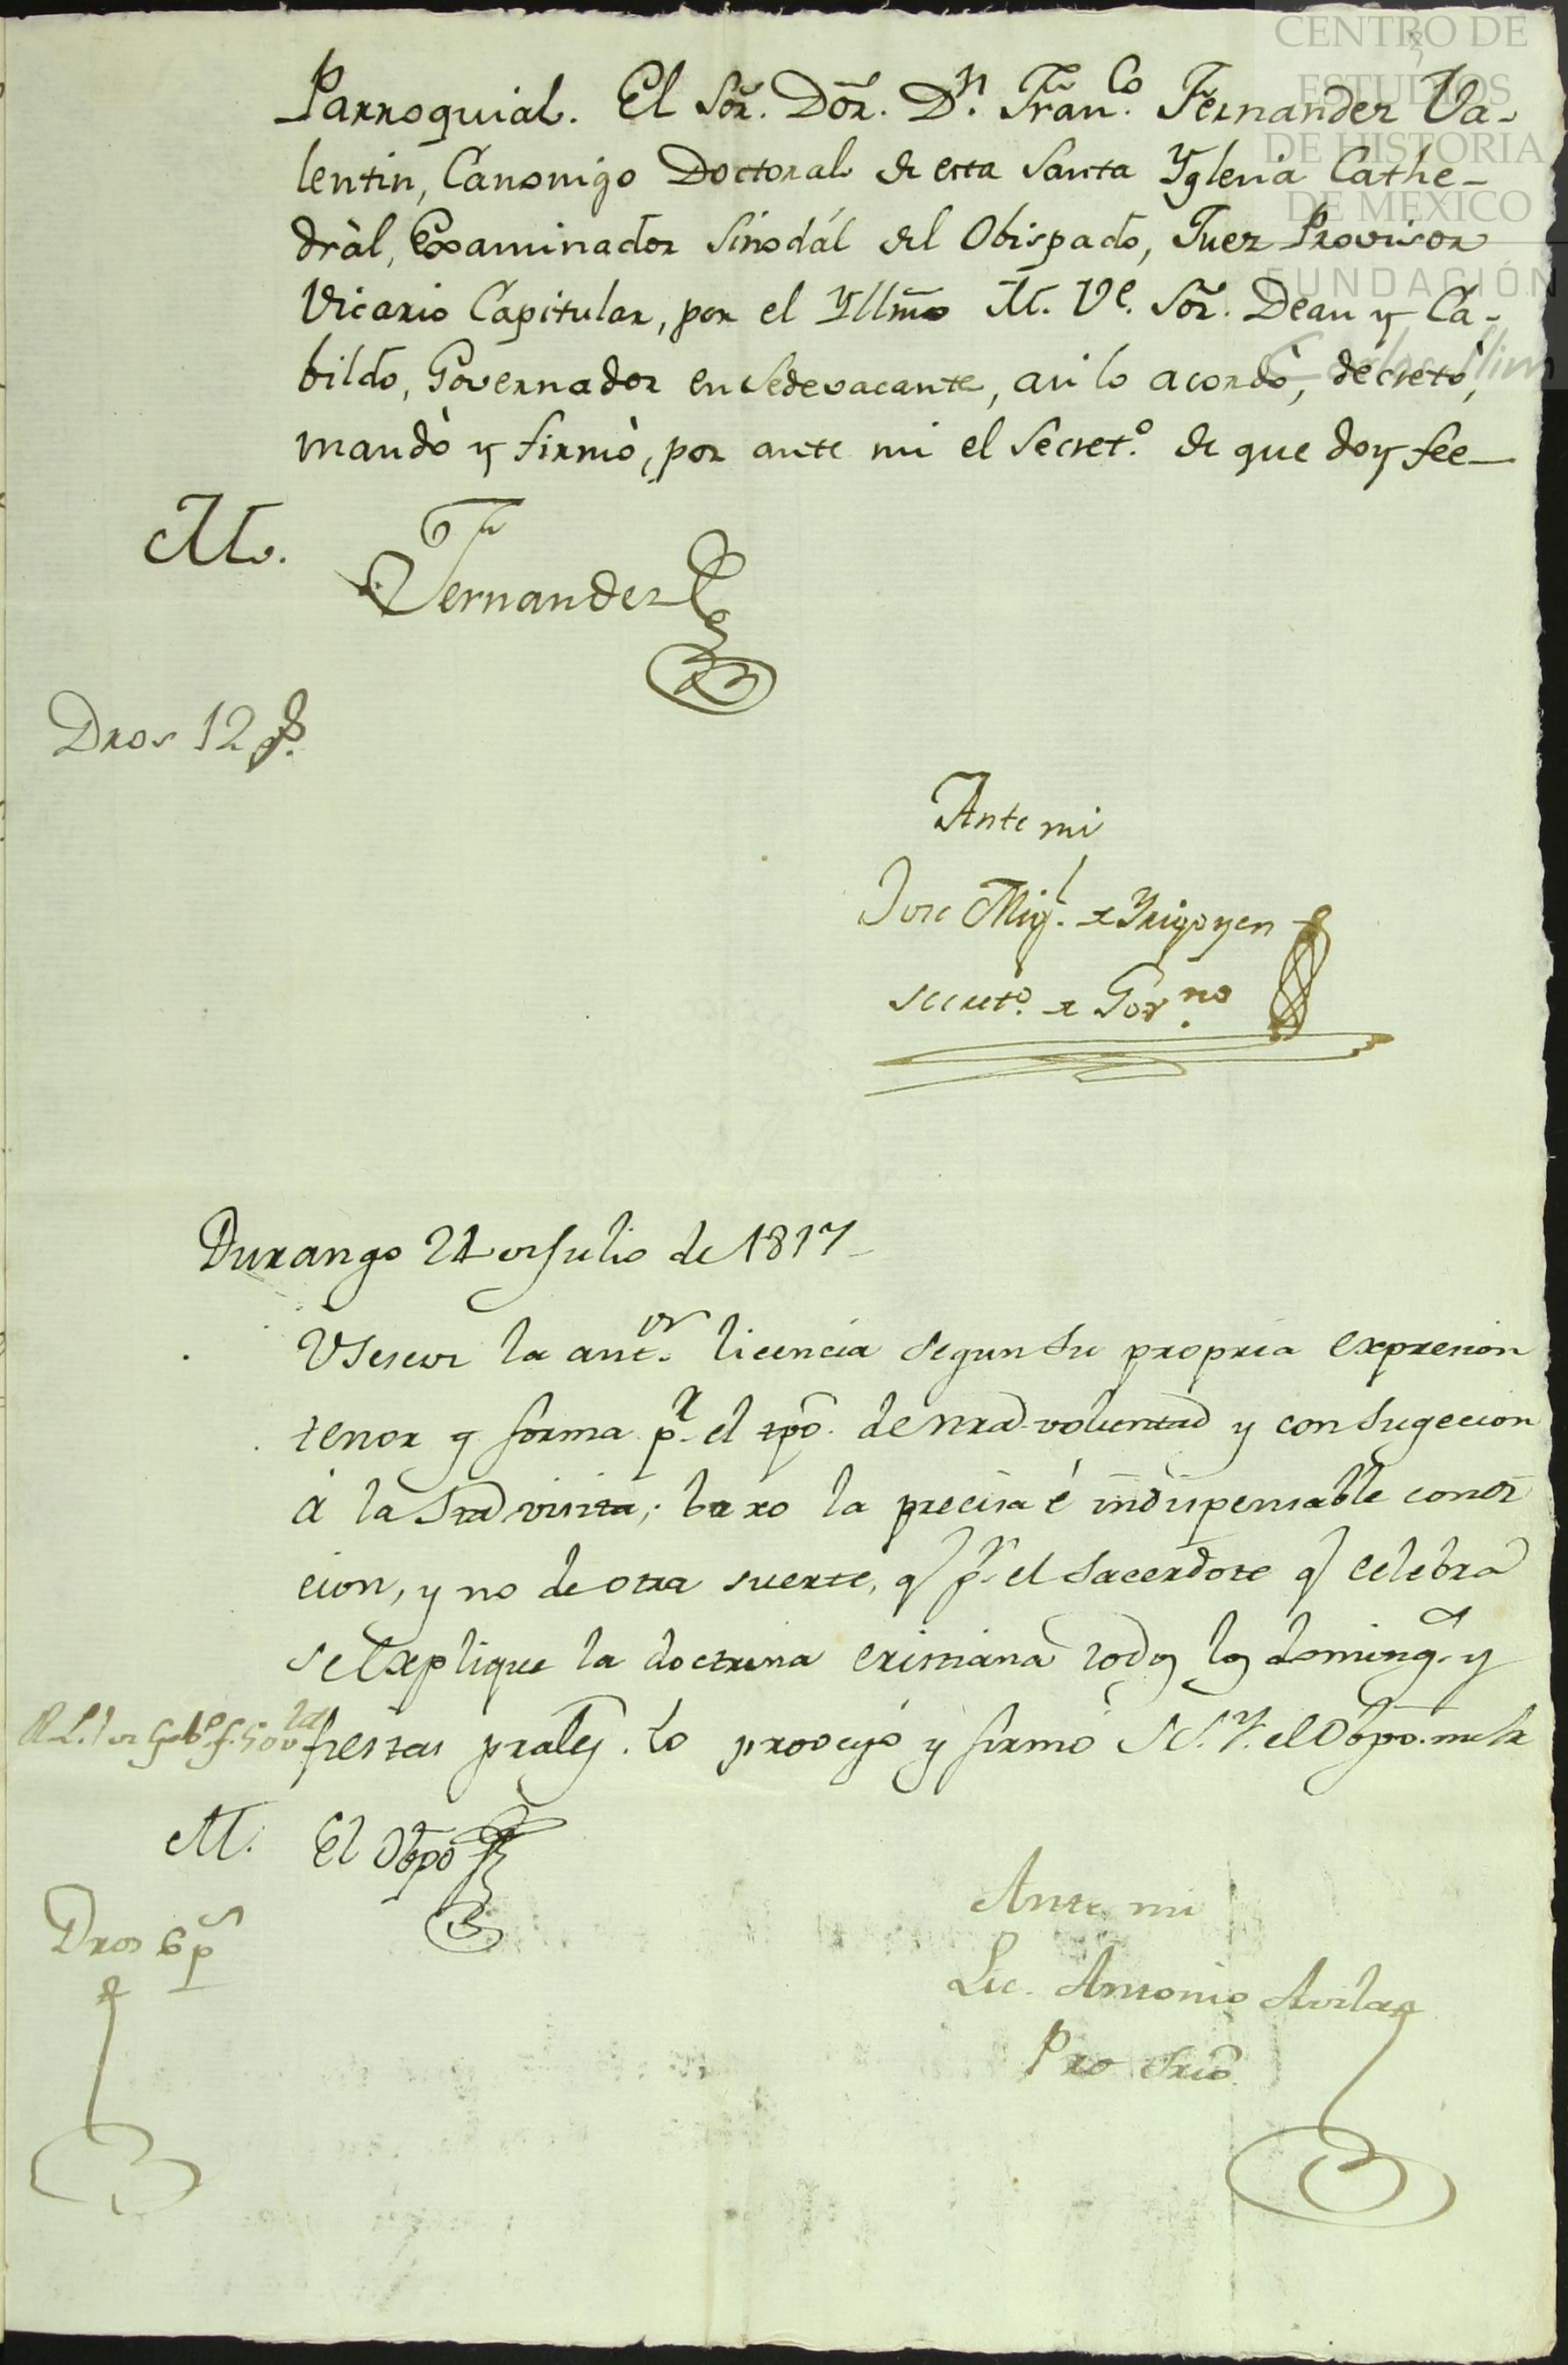 CENTRO DE
ESTUDIOS
DE HISTORIA
DE MEXICO
FUNDACIÓN
Carlos Slim
Parroquial. El Sor. Dor. Dn. Franco. Fernandez Va-
lentin, Canonigo Doctoral de esta Santa Yglesia Cathe-
dràl, Examinador Sinodál del Obispado, Juez Provisor
Vicario Capitular, por el Yllmo M. Ve. Sor. Dean y Ca-
bildo, Governador en Sedevacante, asi lo acordò, decretò,
mandò y firmò, por ante mi el Secreto. de que doy fee
M.
Fernandez
Dros 12 p.
Ante mi
Jose Migl. de Yrigoyen
secreto. de Govno.
Durango 21 de Julio de 1817
Usese de la antor. licencia segun su propria expresion
tenor y forma pr. el tpô. de nra voluntad y con sugecion
à la Sta visita; baxo la precisa é indispensable condi
cion, y no de otra suerte, q pr. el Sacerdote q celebra
se explique la doctrina cristiana todos los domingos y
fiestas prales. Lo proveyó y firmó S.S.Y. el Obpo. mi Sr
M. El Obpo
Dros 6 ps
Ante mi
Lic. Antonio Avila
Pro Srio